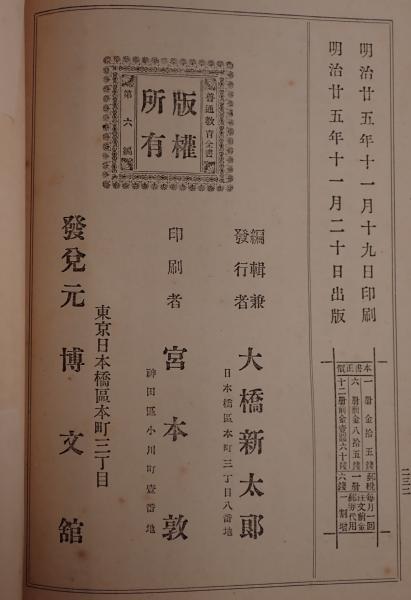 明治廿五年十一月十九日印刷
明治廿五年十一月二十日出版
本書正價
一册金拾五錢
六册前金八拾五錢
郵稅一册六錢
每月一回
版權所有
普通教育全書
第六編
編輯兼發行者
大橋新太郎
日本橋區本町三丁目八番地
印刷者
宮本敦
神田區小川町壹番地
東京日本橋區本町三丁目
發兌元 博文館